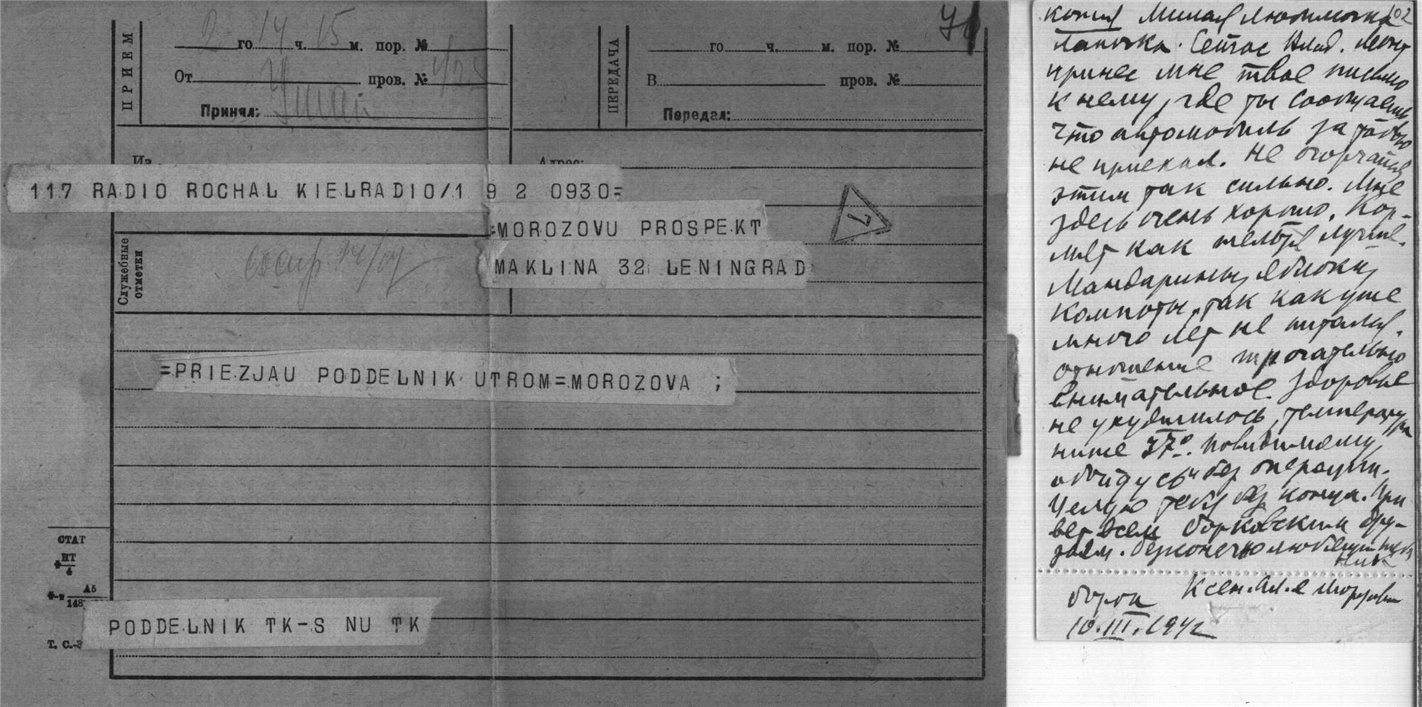 ПРИЕМ
2 го 14 ч. 15 м. пор. №
От пров. №
Принял:
ПЕРЕДАЧА
го ч. м. пор. №
В пров. №
Передал:
Из
Адрес:
117 RADIO ROCHAL KIELRADIO/1 9 2 0930=
=MOROZOVU PROSPEKT
MAKLINA 32 LENINGRAD
7
Служебные
отметки
=PRIEZJAU PODDELNIK UTROM=MOROZOVA ;
СТАТ
НТ
4
А5
148
PODDELNIK TK-S NU TK
Т. С.-З
копия Милая Любимочка 102
Лапочка. Сейчас Влад.
принес мне твое письмо
к нему, где ты сообщаешь,
что автомобиль за тобою
не приехал. Не огорчайся
этим так сильно. Мне
здесь очень хорошо. Кор-
мят как нельзя лучше.
Мандарины, яблоки,
компоты, так как уже
много лет не питался.
отношение трогательно
внимательное. Здоровье
не ухудшилось, температура
ниже 37°. Повидимому,
обойдусь без операции.
Целую тебя без конца. При
вет всем борковским дру-
зьям. бесконечно любящий тебя
Ник
Борок Ксен. Ал-е Морозовой
10.III.1942